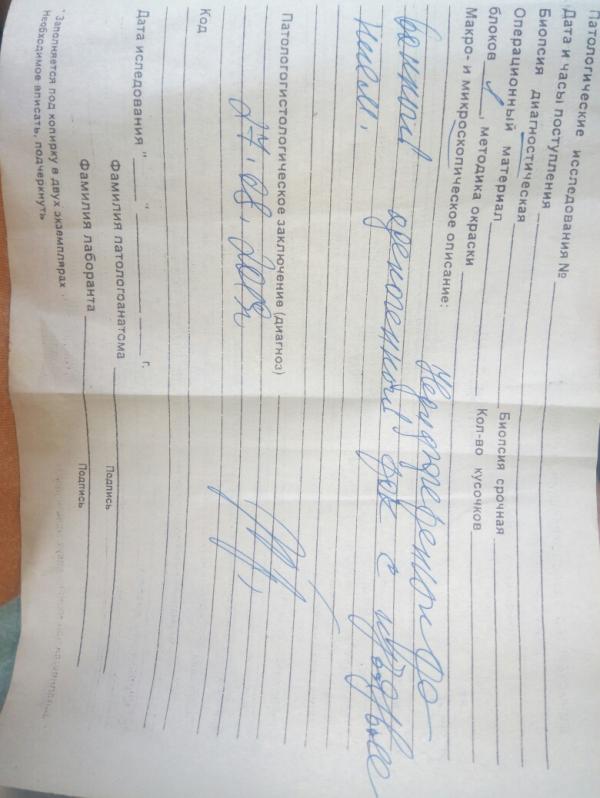 Патологические исследования №
Дата и часы поступления
Биопсия диагностическая
Биопсия срочная
Операционный материал
Кол-во кусочков
блоков , методика окраски
Макро- и микроскопическое описание:
Недифференциро-
ванный орогенный рак с
нием.
Патологогистологическое заключение (диагноз)
Код
Дата иследования " " г.
Фамилия патологоанатома
Подпись
Фамилия лаборанта
Подпись
* Заполняется под копирку в двух экземплярах
Необходимое вписать, подчеркнуть